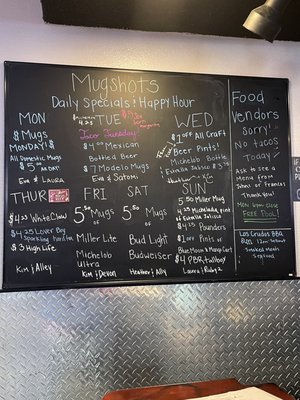 Mugshots
Daily Specials! Happy Hour
MON
$ Mugs
MONDAY! $
All Domestic Mugs
$5.00
Eva & Laura
TUE
Taco Tuesday
$4.00 Mexican
Bottled Beer
$7 Modelo Mugs
Eva & Satomi
WED
$1 OFF All Craft
Beer Pints!
Michelob Bottle
& Estrella Jalisco $3.50
THUR
$4.25 White Claw
$4.25 Lover Boy
Sparkling
$3 High Life
Kim & Alley
FRI
5.50 Mugs
OF
Miller Lite
Michelob
Ultra
Kim & Devon
SAT
5.50 Mugs
OF
Bud Light
Budweiser
Heather & Ally
SUN
5.50 Miller Mug
4.25 Michelada pint
& Estrella Jalisco
$4.25 Pounders
$1 OFF Pints of
Blue Moon & Mango Cart
$4 PBR tallboy
Laura & Ruby
Food
Vendors
Sorry!
No tacos
Today
Ask to see a
Menu from
Shins or Frances
Thank you!
Mon 6pm close
FREE POOL
Los Crudos BBQ
Smoked meats
Seafood